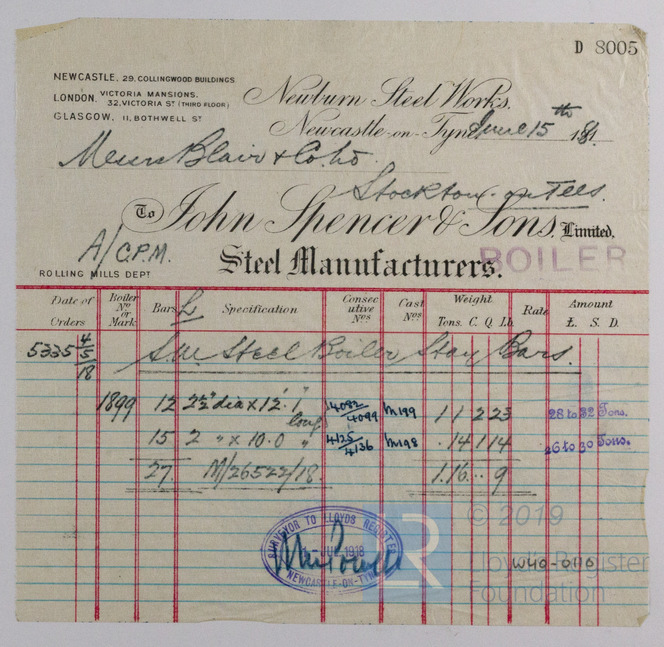 D 8005
NEWCASTLE. 29, COLLINGWOOD BUILDINGS
LONDON. VICTORIA MANSIONS.
32, VICTORIA ST (THIRD FLOOR)
GLASGOW, 11, BOTHWELL ST
Newburn Steel Works.
Newcastle-on-Tyne June 15th 191
Messrs Blair & Co Ltd.
Stockton-on-Tees.
To John Spencer & Sons, Limited,
A/C.P.M.
Steel Manufacturers.
BOILER
ROLLING MILLS DEPT
Date of Orders Boiler No or Mark Bars L Specification Consecutive Nos Cast Nos Weight Tons. C. Q. lb. Rate Amount £. S. D.
5335 4/5/18 S.M. Steel Boiler Stay Bars.
1899 12 2½" dia x 12'. 1" long 4082/4099 M199 1 1 2 23 28 to 32 Tons.
15 2 " x 10.0 " 4125/4136 M198 . 14 1 14 26 to 30 Tons.
27. M/26522/18. 1.16 .. 9
SURVEYOR TO LLOYDS REGISTER
1918
NEWCASTLE-ON-TYNE
LR
© 2019
Lloyd's Register
Foundation
W40-0110